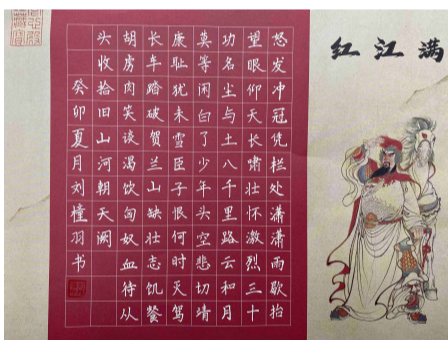 满江红
怒发冲冠凭栏处潇潇雨歇抬
望眼仰天长啸壮怀激烈三十
功名尘与土八千里路云和月
莫等闲白了少年头空悲切靖
康耻犹未雪臣子恨何时灭驾
长车踏破贺兰山缺壮志饥餐
胡虏肉笑谈渴饮匈奴血待从
头收拾旧山河朝天阙
癸卯夏月刘橦羽书